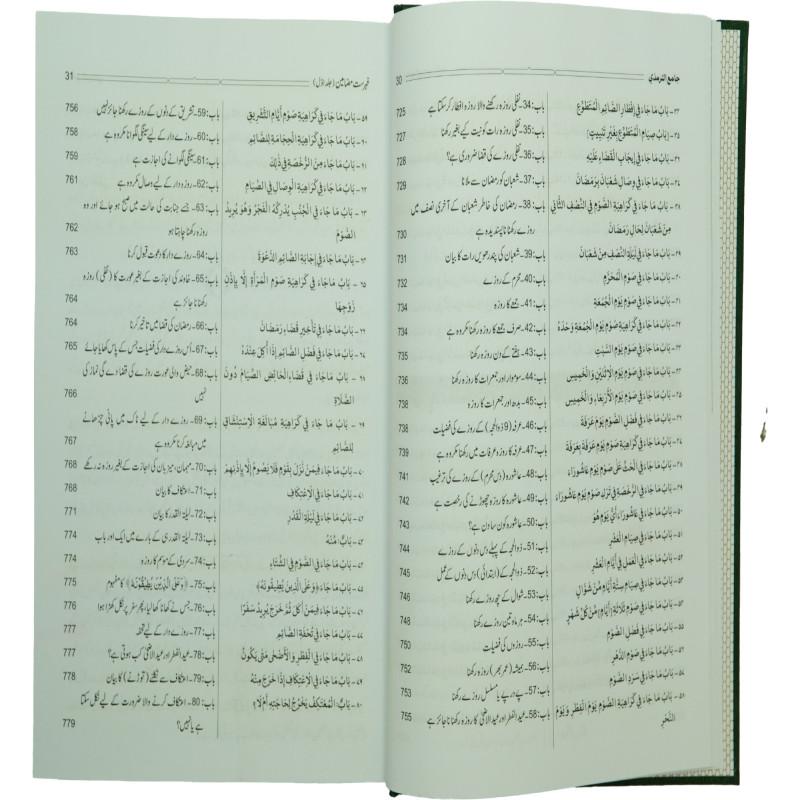 جامع الترمذي 30
٣٤ - بَابُ مَا جَاءَ فِي إِفْطَارِ الصَّائِمِ الْمُتَطَوِّعِ باب: 34- نفلی روزہ رکھنے والا روزہ افطار کر سکتا ہے 725
٣٥ - [بَابُ صِيَامِ الْمُتَطَوِّعِ بِغَيْرِ تَبْيِيتٍ] باب: 35- نفلی روزہ رات کو نیت کیے بغیر رکھنا 727
٣٦ - بَابُ مَا جَاءَ فِي إِيجَابِ الْقَضَاءِ عَلَيْهِ باب: 36- نفلی روزے کی قضا ضروری ہے؟ 728
٣٧ - بَابُ مَا جَاءَ فِي وِصَالِ شَعْبَانَ بِرَمَضَانَ باب: 37- شعبان کو رمضان سے ملانا 729
٣٨ - بَابُ مَا جَاءَ فِي كَرَاهِيَةِ الصَّوْمِ فِي النِّصْفِ الثَّانِي باب: 38- رمضان کی خاطر شعبان کے آخری نصف میں
مِنْ شَعْبَانَ لِحَالِ رَمَضَانَ روزے رکھنا ناپسندیدہ ہے 730
٣٩ - بَابُ مَا جَاءَ فِي لَيْلَةِ النِّصْفِ مِنْ شَعْبَانَ باب: 39- شعبان کی پندرھویں رات کا بیان 731
٤٠ - بَابُ مَا جَاءَ فِي صَوْمِ الْمُحَرَّمِ باب: 40- محرم کے روزے 732
٤١ - بَابُ مَا جَاءَ فِي صَوْمِ يَوْمِ الْجُمُعَةِ باب: 41- جمعے کا روزہ 734
٤٢ - بَابُ مَا جَاءَ فِي كَرَاهِيَةِ صَوْمِ يَوْمِ الْجُمُعَةِ وَحْدَهُ باب: 42- صرف جمعے کا روزہ رکھنا مکروہ ہے 734
٤٣ - بَابُ مَا جَاءَ فِي صَوْمِ يَوْمِ السَّبْتِ باب: 43- ہفتے کے دن روزہ رکھنا 735
٤٤ - بَابُ مَا جَاءَ فِي صَوْمِ يَوْمِ الْإِثْنَيْنِ وَالْخَمِيسِ باب: 44- سوموار اور جمعرات کا روزہ رکھنا 736
٤٥ - بَابُ مَا جَاءَ فِي صَوْمِ يَوْمِ الْأَرْبِعَاءِ وَالْخَمِيسِ باب: 45- بدھ اور جمعرات کا روزہ 738
٤٦ - بَابُ مَا جَاءَ فِي فَضْلِ الصَّوْمِ يَوْمَ عَرَفَةَ باب: 46- عرفہ (9 ذوالحجہ) کے روزے کی فضیلت 738
٤٧ - بَابُ مَا جَاءَ فِي كَرَاهِيَةِ صَوْمِ يَوْمِ عَرَفَةَ بِعَرَفَةَ باب: 47- عرفہ کا روزہ عرفات میں رکھنا مکروہ ہے 739
٤٨ - بَابُ مَا جَاءَ فِي الْحَثِّ عَلَى صَوْمِ يَوْمِ عَاشُورَاءَ باب: 48- عاشورہ (دس محرم) کے روزے کی ترغیب 741
٤٩ - بَابُ مَا جَاءَ فِي الرُّخْصَةِ فِي تَرْكِ صَوْمِ يَوْمِ عَاشُورَاءَ باب: 49- عاشورہ کا روزہ چھوڑنے کی رخصت ہے 742
٥٠ - بَابُ مَا جَاءَ فِي عَاشُورَاءَ أَيُّ يَوْمٍ هُوَ باب: 50- عاشورہ کون سا دن ہے؟ 743
٥١ - بَابُ مَا جَاءَ فِي صِيَامِ الْعَشْرِ باب: 51- ذوالحجہ کے پہلے دس دنوں کے روزے 744
٥٢ - بَابُ مَا جَاءَ فِي الْعَمَلِ فِي أَيَّامِ الْعَشْرِ باب: 52- ذوالحجہ کے (ابتدائی) دس دنوں کے عمل 745
٥٣ - بَابُ مَا جَاءَ فِي صِيَامِ سِتَّةِ أَيَّامٍ مِنْ شَوَّالٍ باب: 53- شوال کے چھ روزے رکھنا 746
٥٤ - بَابُ مَا جَاءَ فِي صَوْمِ ثَلَاثَةِ [أَيَّامٍ] مِنْ كُلِّ شَهْرٍ باب: 54- ہر ماہ تین روزے رکھنا 748
٥٥ - بَابُ مَا جَاءَ فِي فَضْلِ الصَّوْمِ باب: 55- روزوں کی فضیلت 750
٥٦ - بَابُ مَا جَاءَ فِي صَوْمِ الدَّهْرِ باب: 56- ہمیشہ (عمر بھر) روزہ رکھنا 752
٥٧ - بَابُ مَا جَاءَ فِي سَرْدِ الصَّوْمِ باب: 57- پے در پے یا مسلسل روزے رکھنا 753
٥٨ - بَابُ مَا جَاءَ فِي كَرَاهِيَةِ الصَّوْمِ يَوْمَ الْفِطْرِ وَيَوْمَ باب: 58- عید الفطر اور عید الاضحیٰ کا روزہ رکھنا ناجائز ہے 755
النَّحْرِ
فہرست مضامین (جلد اوّل) 31
٥٩ - بَابُ مَا جَاءَ فِي كَرَاهِيَةِ صَوْمِ أَيَّامِ التَّشْرِيقِ باب: 59- تشریق کے دنوں کے روزے رکھنا جائز نہیں 756
٦٠ - بَابُ مَا جَاءَ فِي كَرَاهِيَةِ الْحِجَامَةِ لِلصَّائِمِ باب: 60- روزے دار کے لیے سینگی لگوانا مکروہ ہے 758
٦١ - بَابُ مَا جَاءَ مِنَ الرُّخْصَةِ فِي ذَلِكَ باب: 61- سینگی لگوانے کی اجازت ہے 759
٦٢ - بَابُ مَا جَاءَ فِي كَرَاهِيَةِ الْوِصَالِ فِي الصِّيَامِ باب: 62- روزہ دار کے لیے وصال مکروہ ہے 761
٦٣ - بَابُ مَا جَاءَ فِي الْجُنُبِ يُدْرِكُهُ الْفَجْرُ وَهُوَ يُرِيدُ باب: 63- جسے جنابت کی حالت میں صبح ہو جائے اور وہ
الصَّوْمَ روزہ رکھنا چاہتا ہو 762
٦٤ - بَابُ مَا جَاءَ فِي إِجَابَةِ الصَّائِمِ الدَّعْوَةَ باب: 64- روزے دار کا دعوت قبول کرنا 763
٦٥ - بَابُ مَا جَاءَ فِي كَرَاهِيَةِ صَوْمِ الْمَرْأَةِ إِلَّا بِإِذْنِ باب: 65- خاوند کی اجازت کے بغیر عورت کا (نفلی) روزہ
زَوْجِهَا رکھنا ناجائز ہے 764
٦٦ - بَابُ مَا جَاءَ فِي تَأْخِيرِ قَضَاءِ رَمَضَانَ باب: 66- رمضان کی قضا میں تاخیر کرنا 764
٦٧ - بَابُ مَا جَاءَ فِي فَضْلِ الصَّائِمِ إِذَا أُكِلَ عِنْدَهُ باب: 67- اُس روزے دار کی فضیلت جس کے پاس کھایا جائے 765
٦٨ - بَابُ مَا جَاءَ فِي قَضَاءِ الْحَائِضِ الصِّيَامَ دُونَ باب: 68- حیض والی عورت روزے کی قضا دے گی نماز کی
الصَّلَاةِ نہیں 766
٦٩ - بَابُ مَا جَاءَ فِي كَرَاهِيَةِ مُبَالَغَةِ الْاِسْتِنْشَاقِ باب: 69- روزے دار کے لیے ناک میں پانی چڑھانے
لِلصَّائِمِ میں مبالغہ کرنا مکروہ ہے 767
٧٠ - بَابُ مَا جَاءَ فِيمَنْ نَزَلَ بِقَوْمٍ فَلَا يَصُومُ إِلَّا بِإِذْنِهِمْ باب: 70- مہمان، میزبان کی اجازت کے بغیر روزہ نہ رکھے 768
٧١ - بَابُ مَا جَاءَ فِي الْاِعْتِكَافِ باب: 71- اعتکاف کا بیان 768
٧٢ - بَابُ مَا جَاءَ فِي لَيْلَةِ الْقَدْرِ باب: 72- لیلۃ القدر کا بیان 770
٧٣ - بَابٌ: مِنْهُ باب: 73- لیلۃ القدر ہی کے بارے میں ایک اور باب 774
٧٤ - بَابُ مَا جَاءَ فِي الصَّوْمِ فِي الشِّتَاءِ باب: 74- سردی کے موسم کا روزہ 774
٧٥ - بَابُ مَا جَاءَ ﴿وَعَلَى الَّذِينَ يُطِيقُونَهُ﴾ باب: 75- ﴿وَعَلَى الَّذِينَ يُطِيقُونَهُ﴾ کا مفہوم 775
٧٦ - بَابُ مَا جَاءَ فِيمَنْ أَكَلَ ثُمَّ خَرَجَ يُرِيدُ سَفَرًا باب: 76- جس نے کھانا کھا لیا، پھر سفر پر نکل کھڑا ہوا 776
٧٧ - بَابُ مَا جَاءَ فِي تُحْفَةِ الصَّائِمِ باب: 77- روزے دار کے لیے تحفہ 777
٧٨ - بَابُ مَا جَاءَ فِي الْفِطْرِ وَالْأَضْحَى مَتَى يَكُونُ باب: 78- عید الفطر اور عید الاضحیٰ کب ہوتی ہے؟ 777
٧٩ - بَابُ مَا جَاءَ فِي الْاِعْتِكَافِ إِذَا خَرَجَ مِنْهُ باب: 79- اعتکاف سے نکلنے (توڑنے) کا بیان 778
٨٠ - بَابُ: الْمُعْتَكِفُ يَخْرُجُ لِحَاجَتِهِ أَمْ لَا؟ باب: 80- اعتکاف کرنے والا ضرورت کے لیے نکل سکتا
ہے یا نہیں؟ 779